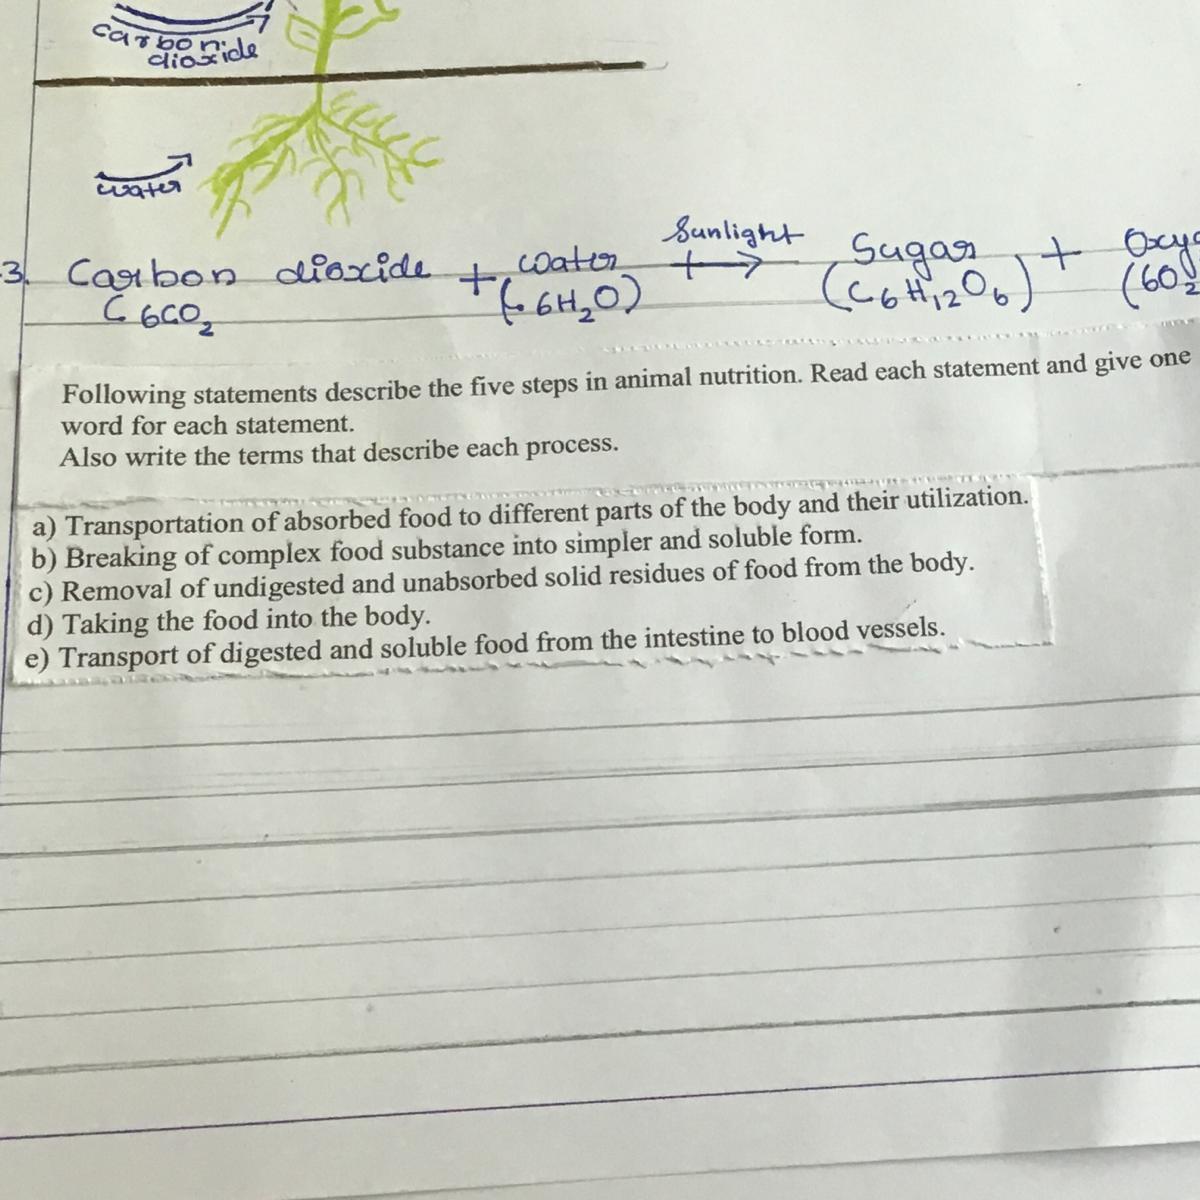 carbon
dioxide
water
3. Carbon dioxide + water Sunlight → Sugar + Oxyg
6CO₂ (6H₂O) (C₆H₁₂O₆) (6O₂
Following statements describe the five steps in animal nutrition. Read each statement and give one
word for each statement.
Also write the terms that describe each process.
a) Transportation of absorbed food to different parts of the body and their utilization.
b) Breaking of complex food substance into simpler and soluble form.
c) Removal of undigested and unabsorbed solid residues of food from the body.
d) Taking the food into the body.
e) Transport of digested and soluble food from the intestine to blood vessels.